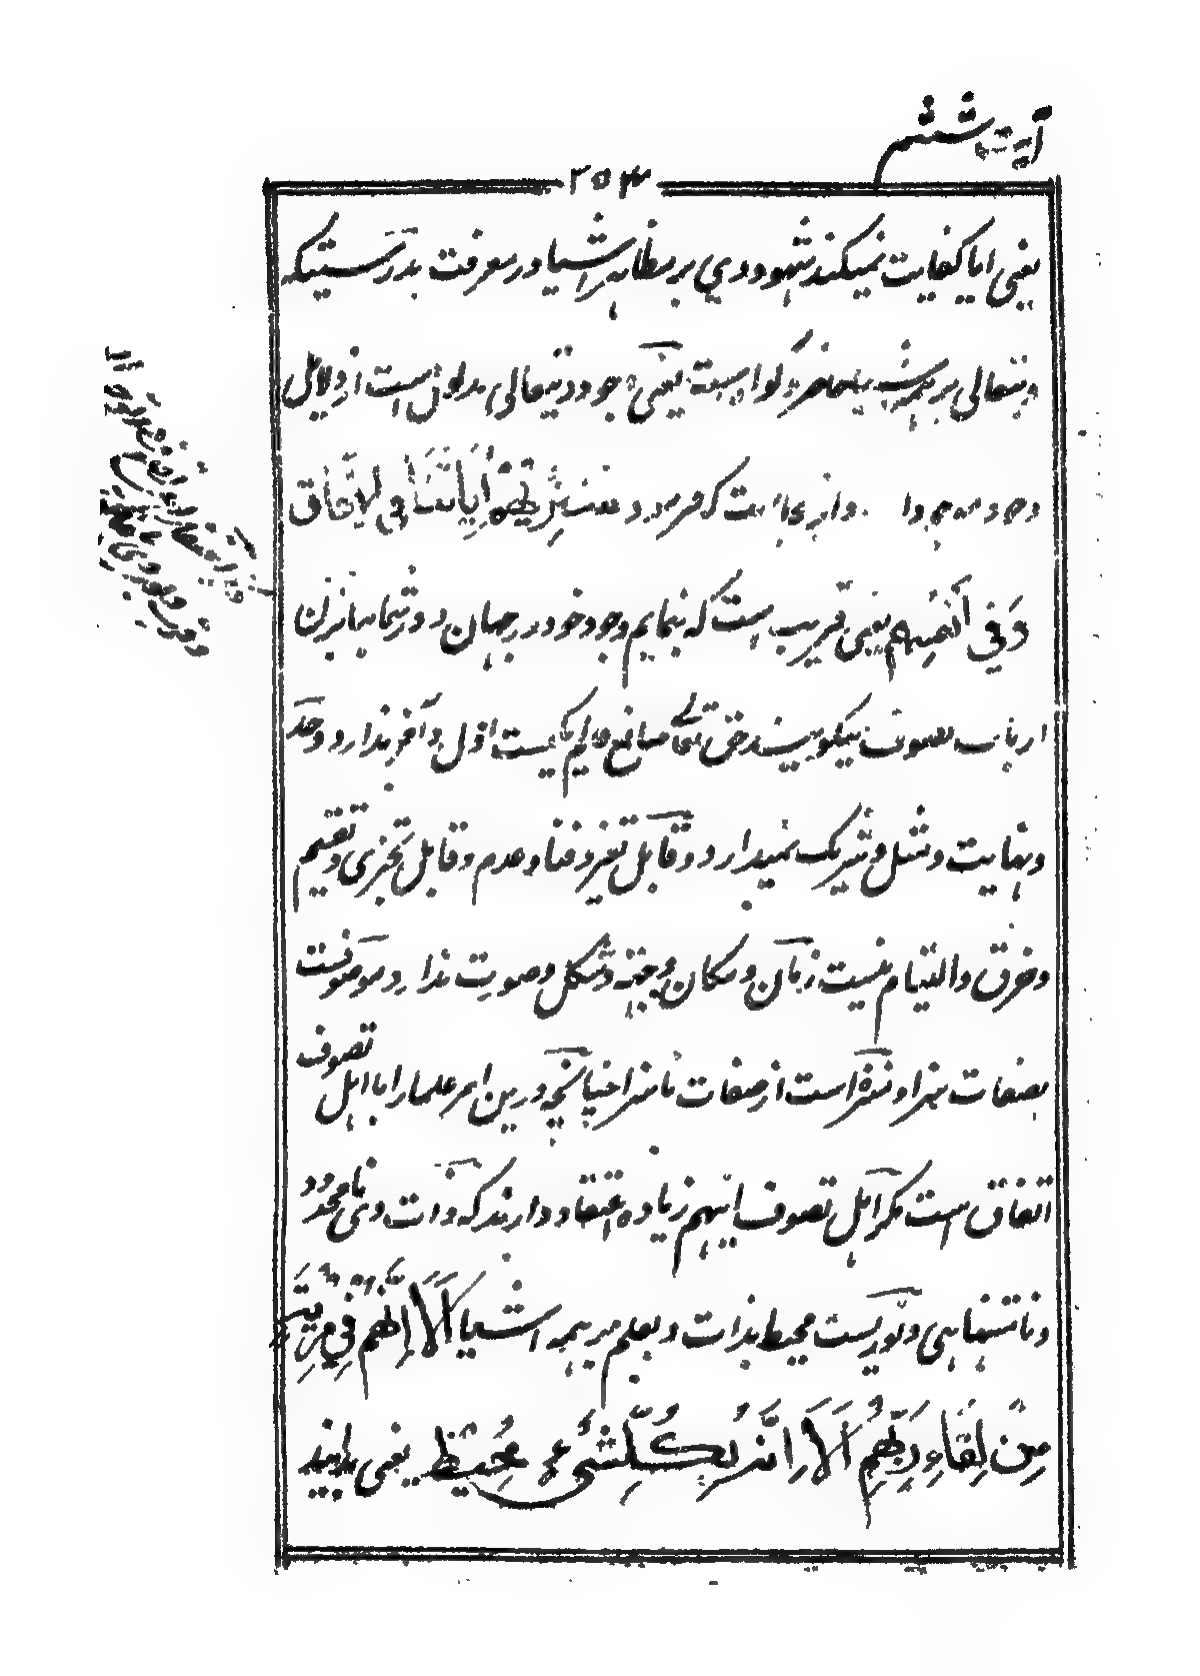 آیت ششم
۳۵۴
یعنی ایا کفایت نمیکند شهود وی بر مظاهر اشیا و در معرفت بدرستیکه
ویتعالی بر همه شی گواه است یعنی وجود ویتعالی مدلول است از دلایل
وجود موجودات و ازینجا است که فرموده سَنُرِیهِم آیَاتِنَا فِی الآفَاق
وَفِی أَنفُسِهِم یعنی قریب است که بنمایم وجود خود در جهان و در شما بمانند آن
ارباب تصوف میگویند حق تعالی صانع عالم یکیست اول و آخر ندارد و حد
و نهایت و مثل و شریک نمیدارد و قابل تغیر و فنا و عدم و قابل تجزی و تقسیم
و خرق والتیام نیست زمان و مکان و جهة و شکل و صورت ندارد و موصوفست
بصفات سزا و منزه است از صفات ناسزا چنانچه در ین امر علما را با اهل تصوف
اتفاق است مگر اهل تصوف اینهم زیاده اعتقاد دارند که ذات وی نامحدود
و نامتناهی و نوریست محیط بذات و بعلم بر همه اشیا أَلَا إِنَّهُم فِی مِریَةٍ
مِن لِقَاءِ رَبِّهِم أَلَا إِنَّهُ بِکُلِّ شَیءٍ مُحِیطٌ یعنی بدانید